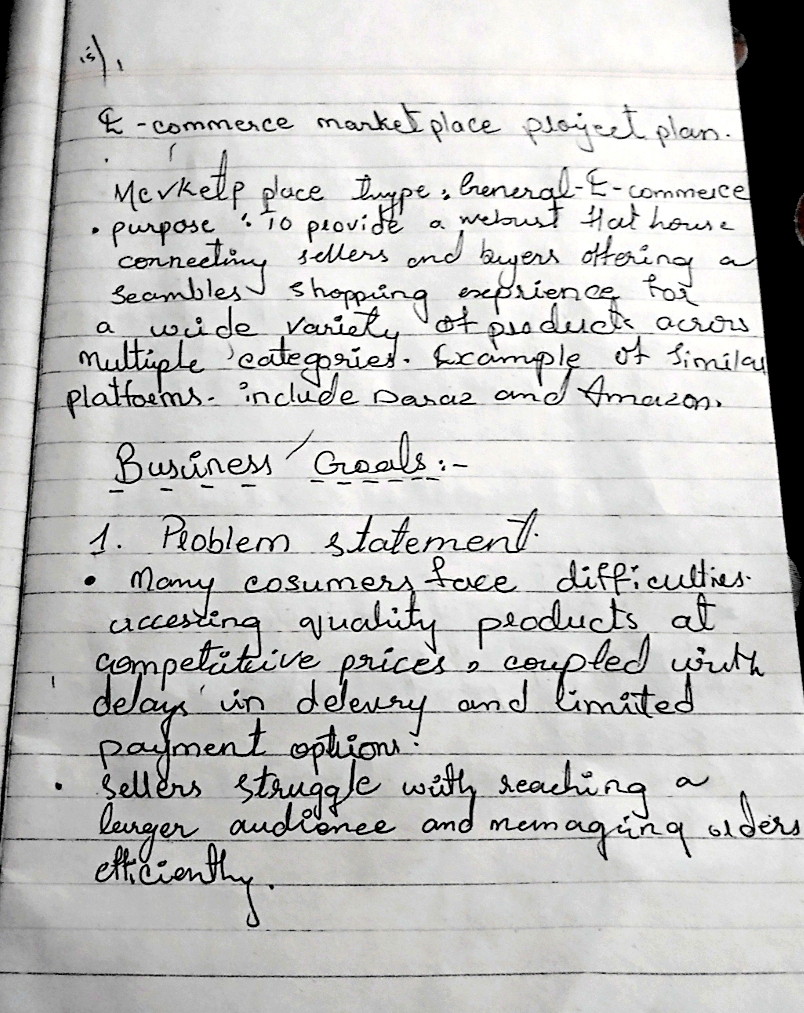 E-commerce marketplace project plan.
Mcrketp place thype : General-E-commerce
• purpose : To provide a webust flat house
connecting sellers and buyers offering a
seambles shopping exprience for
a wide variety of products across
multiple categories. Example of similar
platforms. include Daraz and Amazon.
Business Goals :-
1. Problem statement.
• Many cosumers face difficulties.
accessing quality products at
competitive prices, coupled with
delays in delevry and limited
payment options.
• Sellers struggle with reaching a
larger audience and managing orders
efficiently.